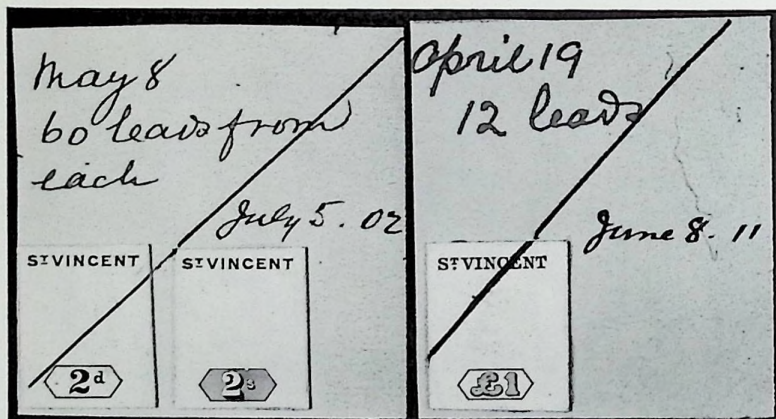 May 8
60 leads from
each
July 5. 02
ST VINCENT
ST VINCENT
2d
2s
April 19
12 leads
June 8. 11
ST VINCENT
£1